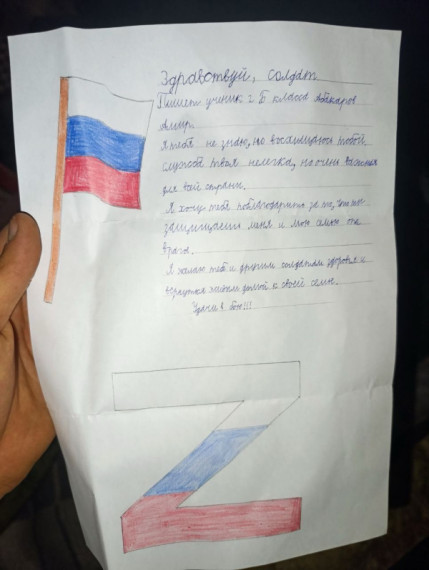 Здравствуй, солдат
Пишет ученик 2 Б класса Абакаров
Амир.
Я тебя не знаю, но восхищаюсь тобой
служба твоя нелегка, но очень важна
для всей страны.
Я хочу тебя поблагодарить за то, что ты
защищаешь меня и мою семью от
врага.
Я желаю тебе и другим солдатам здоровья и
вернуться живым домой к своей семье.
Удачи в бою!!!
Z